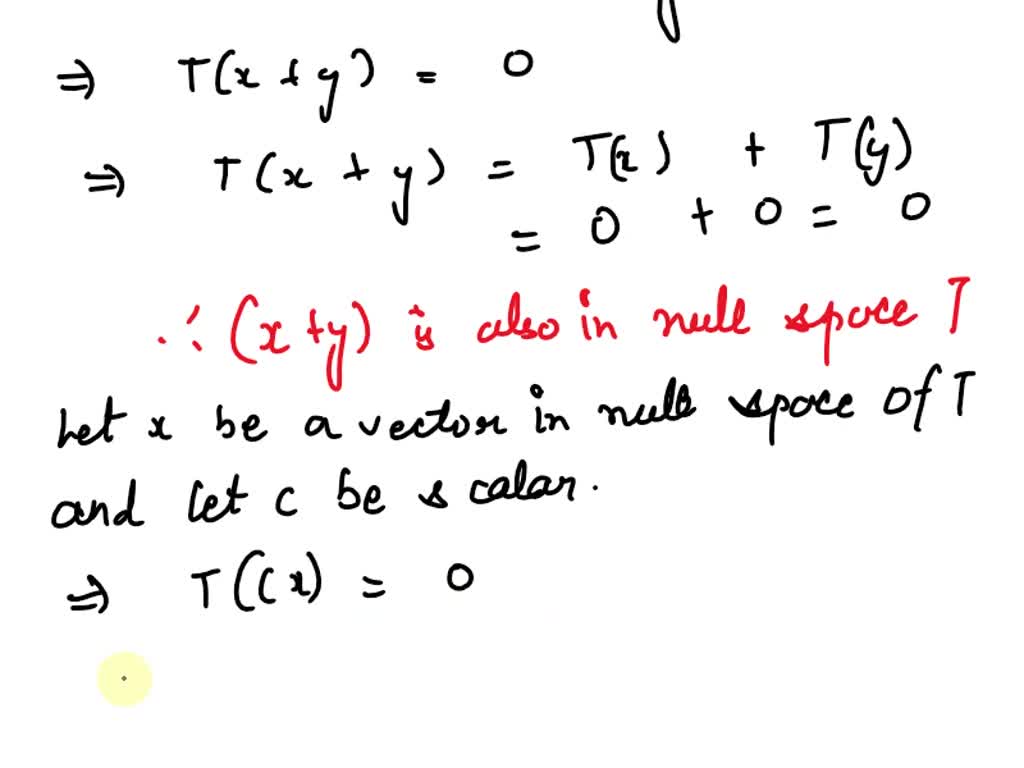 ⇒ T(x + y) = 0
⇒ T(x + y) = T(x) + T(y)
= 0 + 0 = 0
∴ (x+y) is also in null space T
Let x be a vector in null space of T
and let c be scalar.
⇒ T(cx) = 0